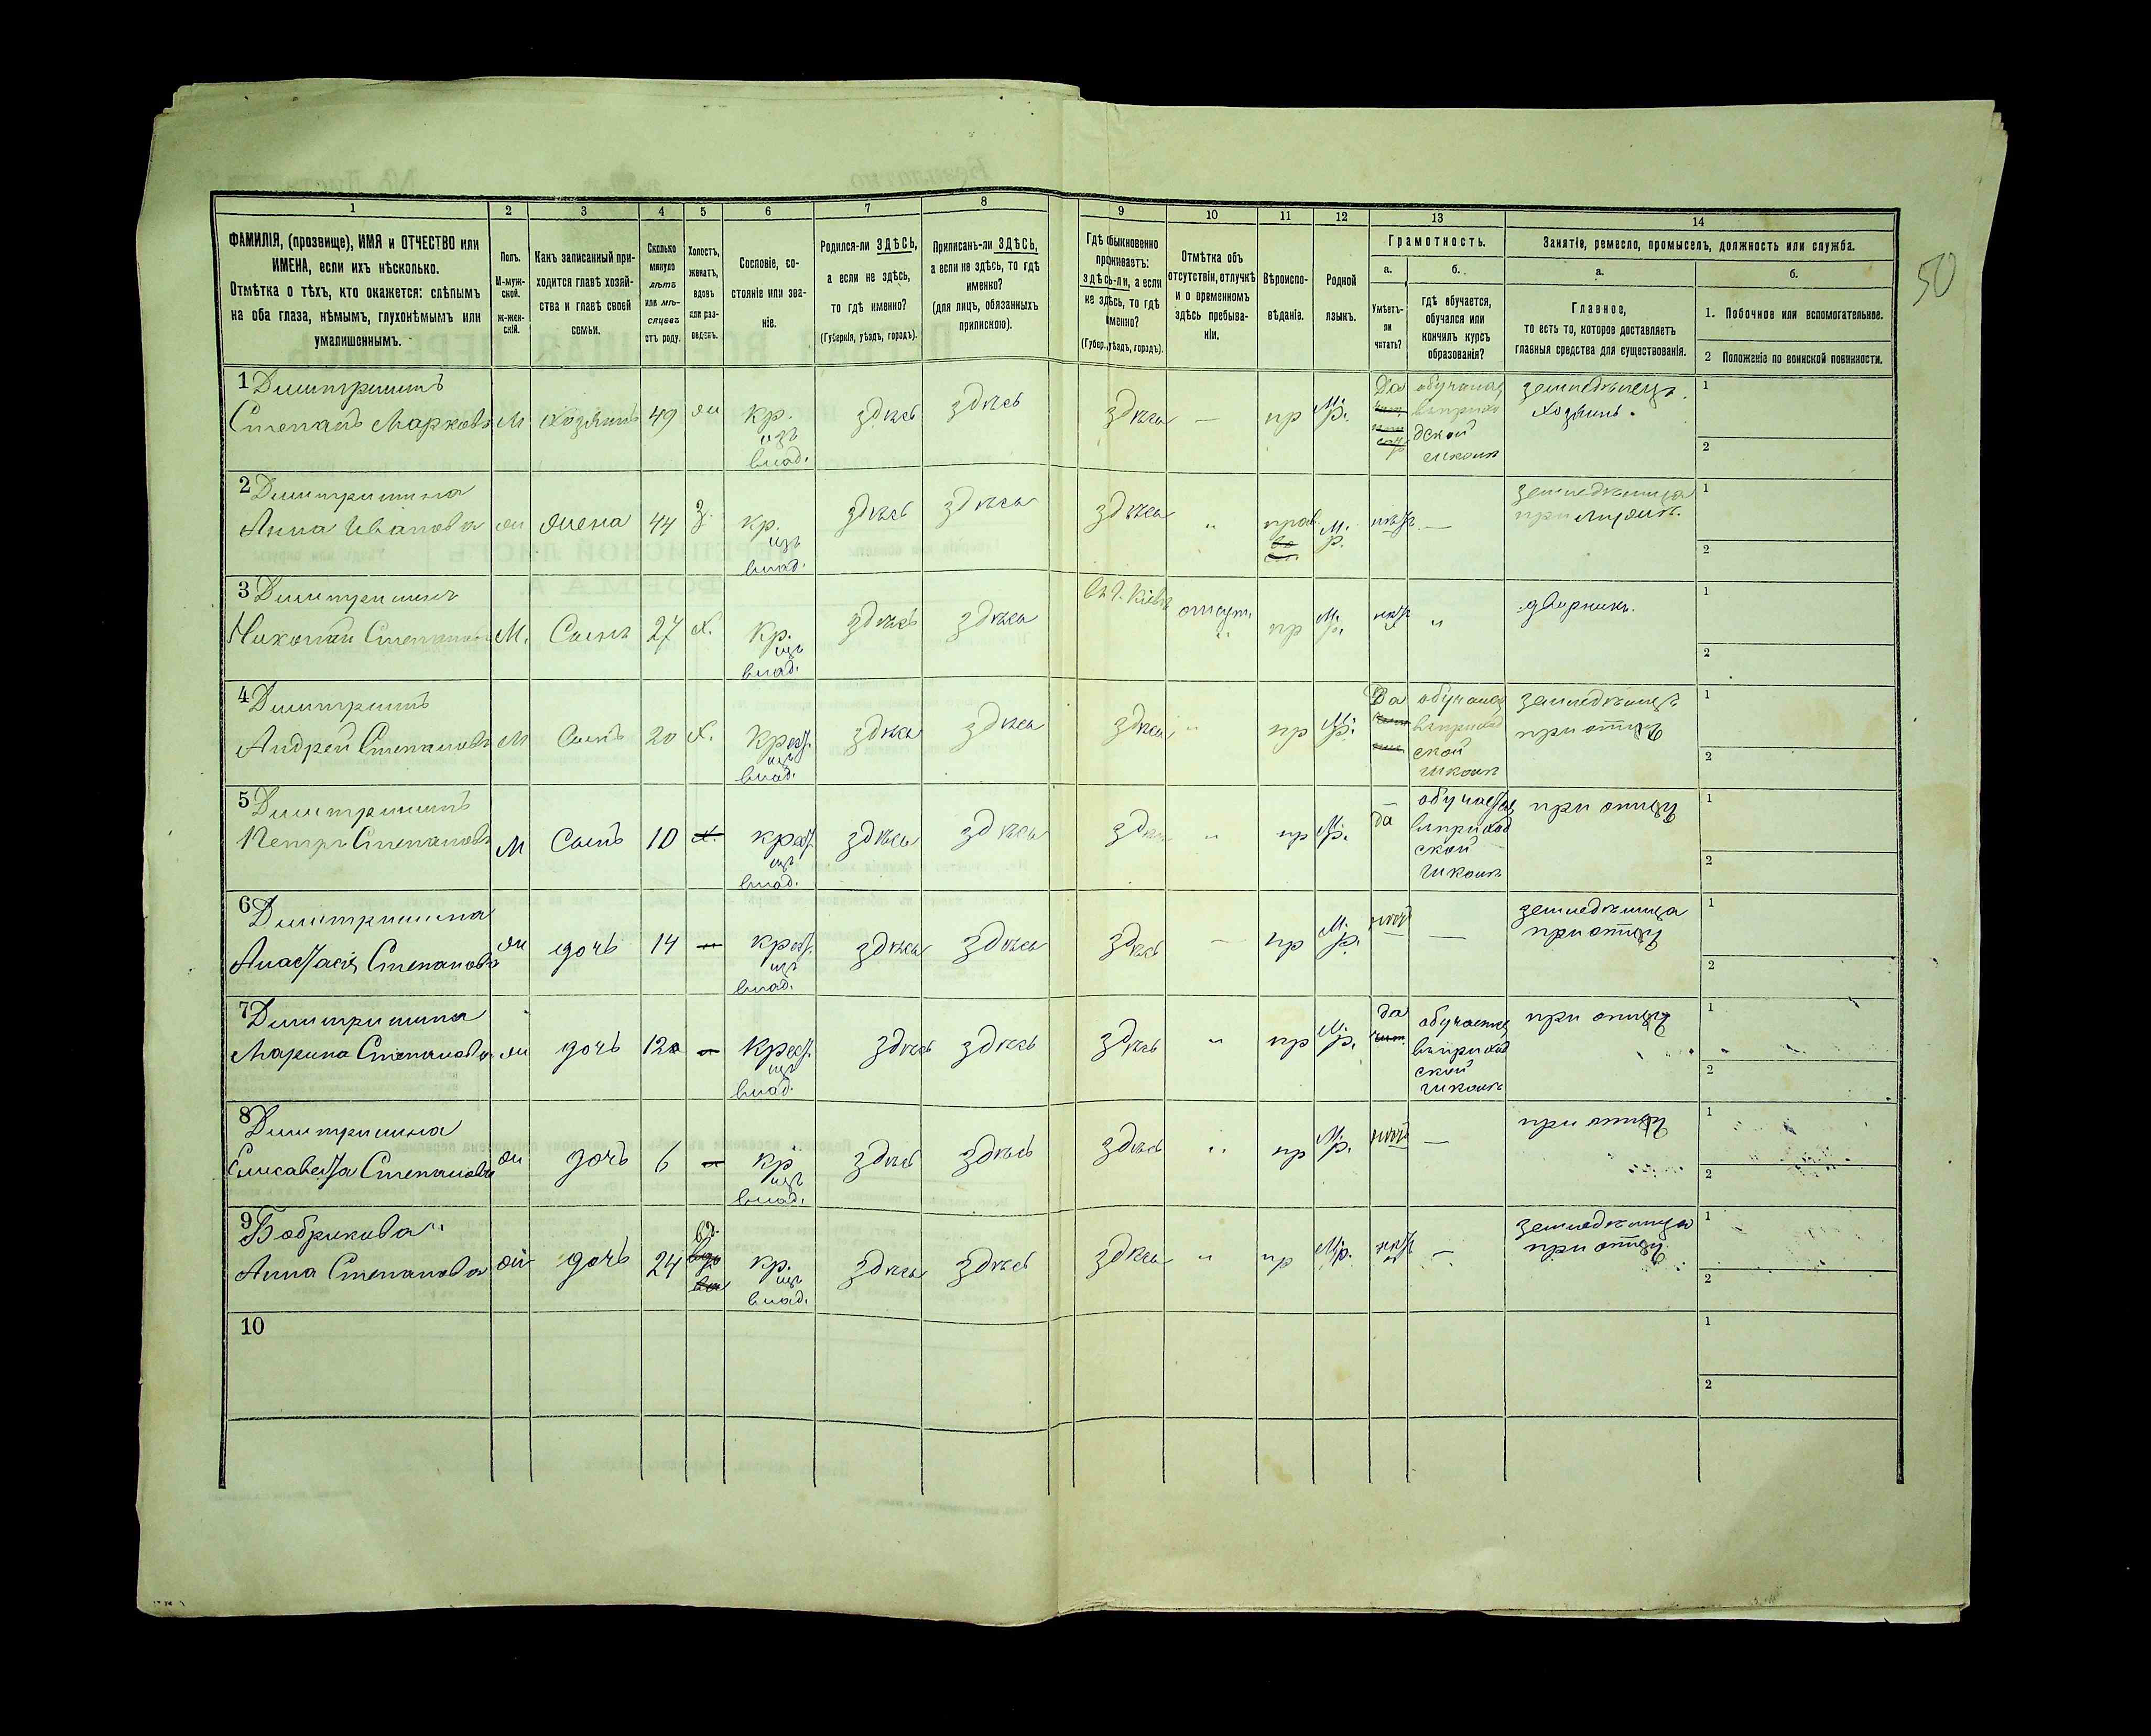 50
1 2 3 4 5 6 7 8 9 10 11 12 13 14
ФАМИЛІЯ, (прозвище), ИМЯ и ОТЧЕСТВО или
ИМЕНА, если ихъ нѣсколько.
Отмѣтка о тѣхъ, кто окажется: слѣпымъ
на оба глаза, нѣмымъ, глухонѣмымъ или
умалишеннымъ.
Полъ.
М-муж-
ской.
ж-жен-
скій.
Какъ записанный при-
ходится главѣ хозяй-
ства и главѣ своей
семьи.
Сколько
минуло
лѣтъ
или мѣ-
сяцевъ
отъ роду.
Холостъ,
женатъ,
вдовъ
или раз-
веденъ.
Сословіе, со-
стояніе или зва-
ніе.
Родился-ли ЗДѢСЬ,
а если не здѣсь,
то гдѣ именно?
(Губернія, уѣздъ, городъ).
Приписанъ-ли ЗДѢСЬ,
а если не здѣсь, то гдѣ
именно?
(для лицъ, обязанныхъ
припискою).
Гдѣ обыкновенно
проживаетъ:
здѣсь-ли, а если
не здѣсь, то гдѣ
именно?
(Губер., уѣздъ, городъ).
Отмѣтка объ
отсутствіи, отлучкѣ
и о временномъ
здѣсь пребыва-
ніи.
Вѣроиспо-
вѣданіе.
Родной
языкъ.
Грамотность.
а.
Умѣетъ-
ли
читать?
б.
гдѣ обучается,
обучался или
кончилъ курсъ
образованія?
Занятіе, ремесло, промыселъ, должность или служба.
а.
Главное,
то есть то, которое доставляетъ
главныя средства для существованія.
б.
1. Побочное или вспомогательное.
2 Положеніе по воинской повинности.
1 Димитришинъ
Степанъ Марковъ М хозяинъ 49 ж кр. здѣсь здѣсь здѣсь — пр М. Да обучался земледѣлецъ. 1
изъ р. въприхо хозяинъ.
влад. дской 2
школѣ
2 Димитришина
Анна Ивановна ж жена 44 З. кр. здѣсь здѣсь здѣсь " прав. М. нѣтъ — земледѣлица 1
изъ р. при мужѣ.
влад. 2
3 Димитришинъ
Николай Степановъ М. Сынъ 27 Х. кр. здѣсь здѣсь въ г. Кіевѣ отсут. пр М. нѣтъ " дворникъ. 1
изъ " р.
влад. 2
4 Димитришинъ
Андрей Степановъ М Сынъ 20 Х. крест. здѣсь здѣсь здѣсь " пр М. Да обучался земледѣлецъ 1
изъ р. въприход при отцѣ
влад. ской 2
школѣ
5 Димитришинъ
Петръ Степановъ М Сынъ 10 крест. здѣсь здѣсь здѣсь " пр М. да обучается при отцѣ 1
изъ р. въприход
влад. ской 2
школѣ
6 Димитришина
Анастасія Степановна ж дочь 14 — крест. здѣсь здѣсь здѣсь — пр М. нѣтъ — земледѣлица 1
изъ р. при отцѣ
влад. 2
7 Димитришина
Марина Степановна ж дочь 12 — крест. здѣсь здѣсь здѣсь " пр М. да обучается при отцѣ 1
изъ р. въприход
влад. ской 2
школѣ
8 Димитришина
Елисавета Степановна ж дочь 6 — кр здѣсь здѣсь здѣсь " пр М. нѣтъ — при отцѣ 1
изъ р.
влад. 2
9 Бобрикова
Анна Степановна ж дочь 24 вд. кр. здѣсь здѣсь здѣсь " пр М.р. нѣтъ — земледѣлица 1
изъ при отцѣ
влад. 2
10 1
2